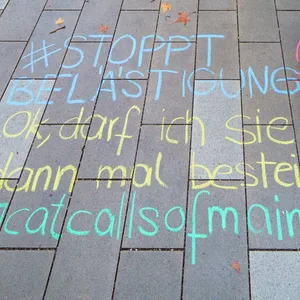 #STOPPT
BELÄSTIGUNG
Ok, darf ich sie
dann mal bestei
catcallsofmain